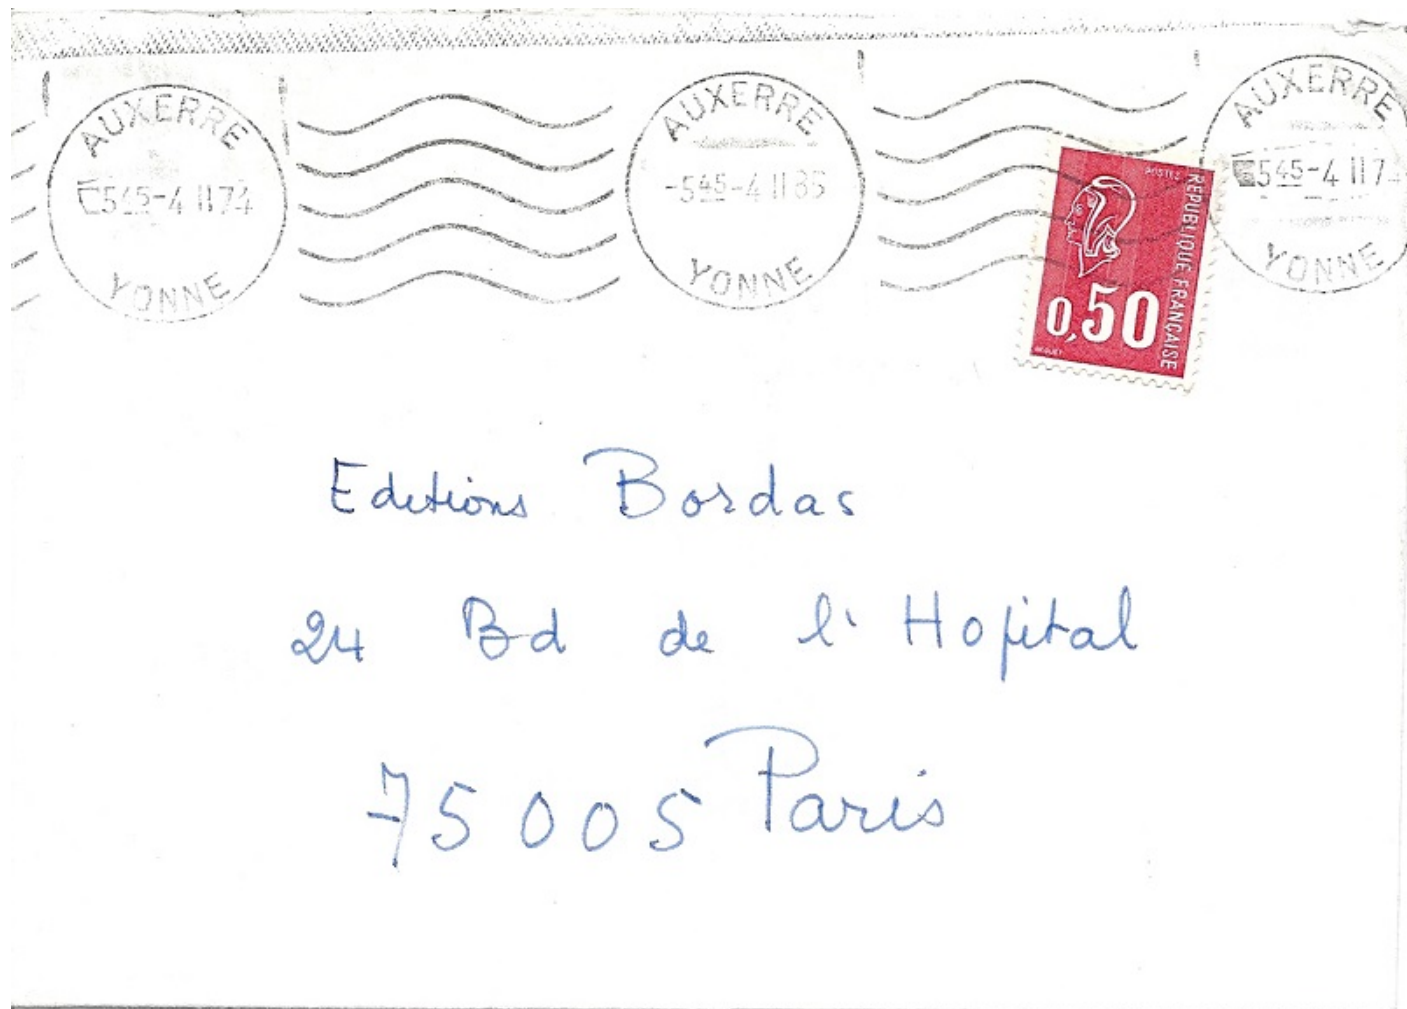 AUXERRE
545-4 II 74
YONNE
AUXERRE
-545-4 II 85
YONNE
AUXERRE
545-4 II 7
YONNE
POSTES
REPUBLIQUE FRANÇAISE
0,50
Editions Bordas
24 Bd de l' Hopital
75005 Paris